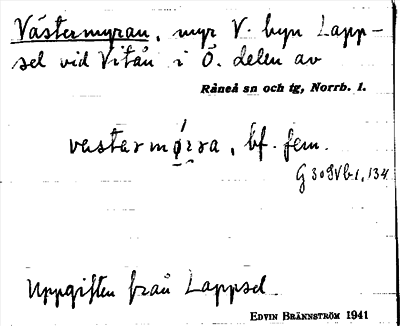 Västermyran, myr V. byn Lapp-
sel vid Vitån i Ö. delen av
Råneå sn och tg, Norrb. l.
vestermǿrra, bf. fem.
Uppgiften från Lappsel
EDVIN BRÄNNSTRÖM 1941